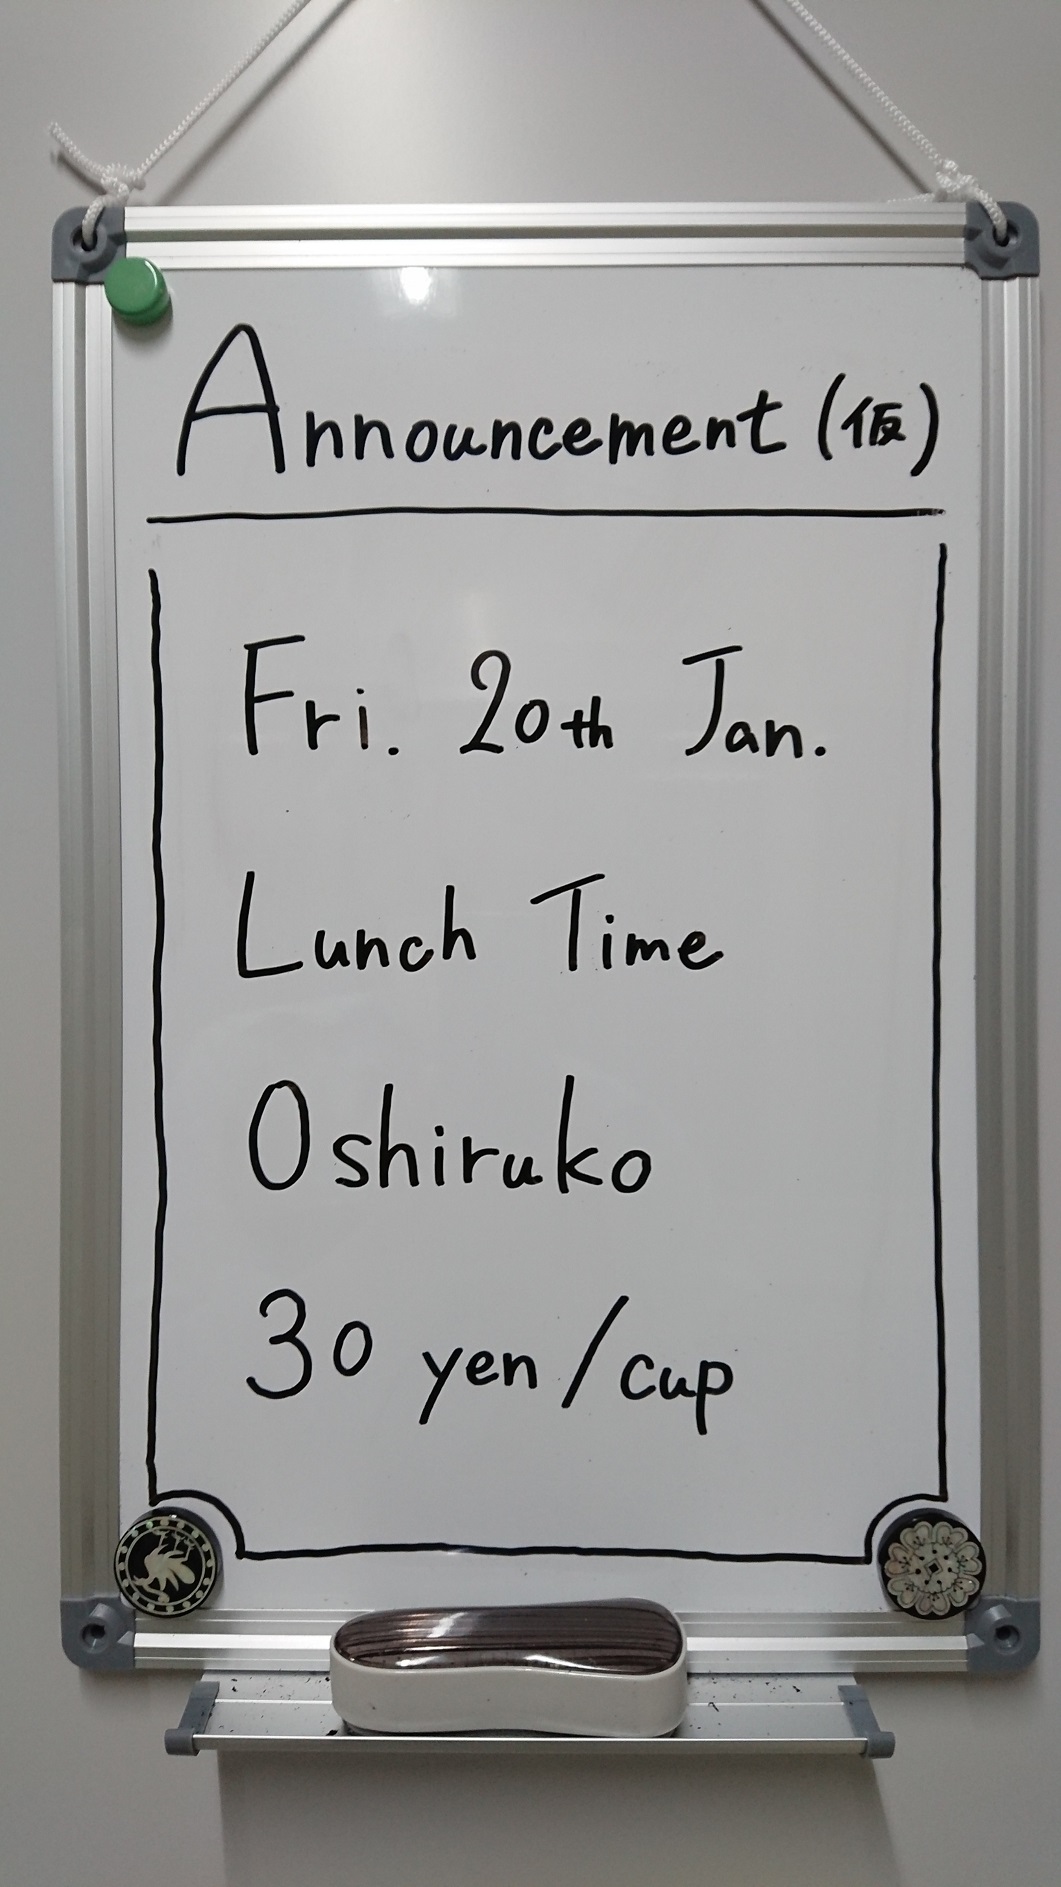 Announcement (仮)
Fri. 20th Jan.
Lunch Time
Oshiruko
30 yen/cup